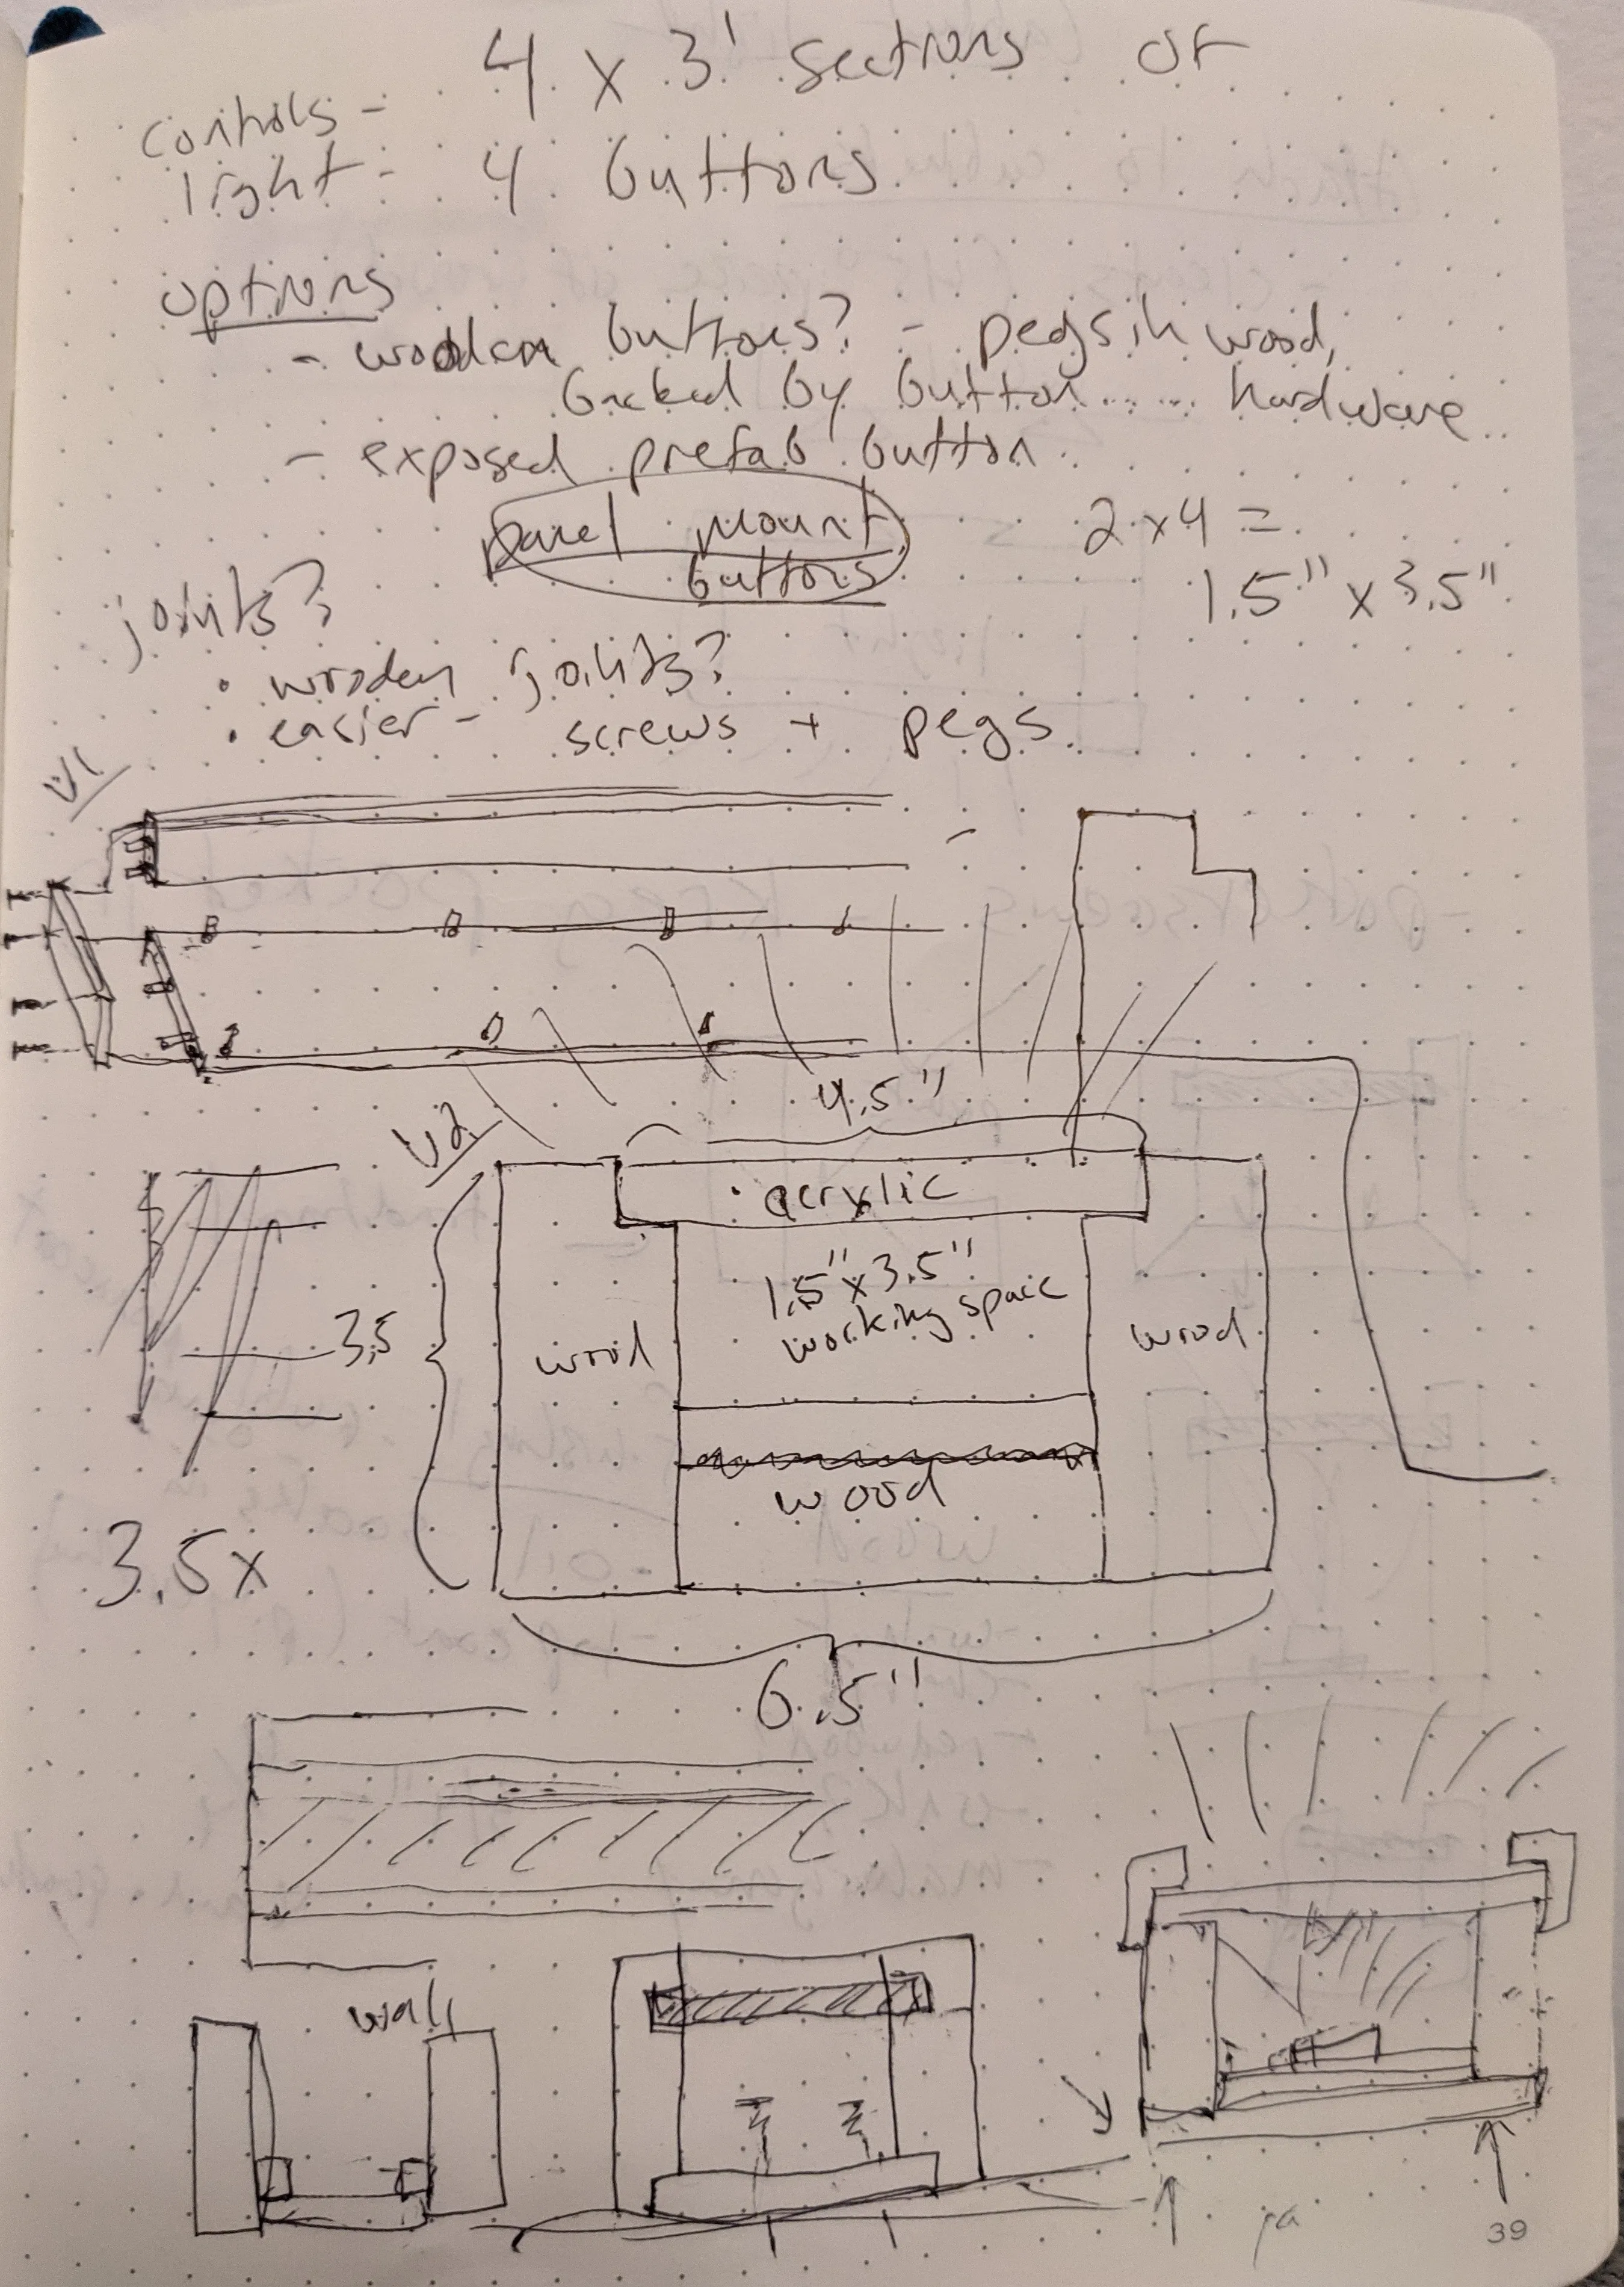 4 x 3' sections of
controls -
light - 4 buttons
options
- wooden buttons? - pegs in wood,
backed by button..... hardware
- exposed prefab button
panel mount
buttons
2x4 =
1.5" x 3.5"
joints?
• wooden joints?
• easier - screws + pegs
V1
V2
4.5"
acrylic
1.5" x 3.5"
working space
3.5
wood
wood
wood
3.5x
6.5"
wall
39